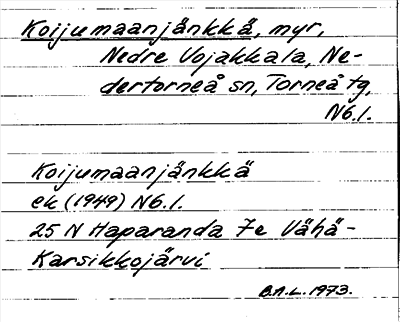 Koijumaanjänkkä, myr,
Nedre Vojakkala, Ne-
dertorneå sn, Torneå tg,
Nb.l.
Koijumaanjänkkä
ek (1949) Nb.l.
25 N Haparanda 7e Vähä-
Karsikkojärvi
B.A.L. 1973.